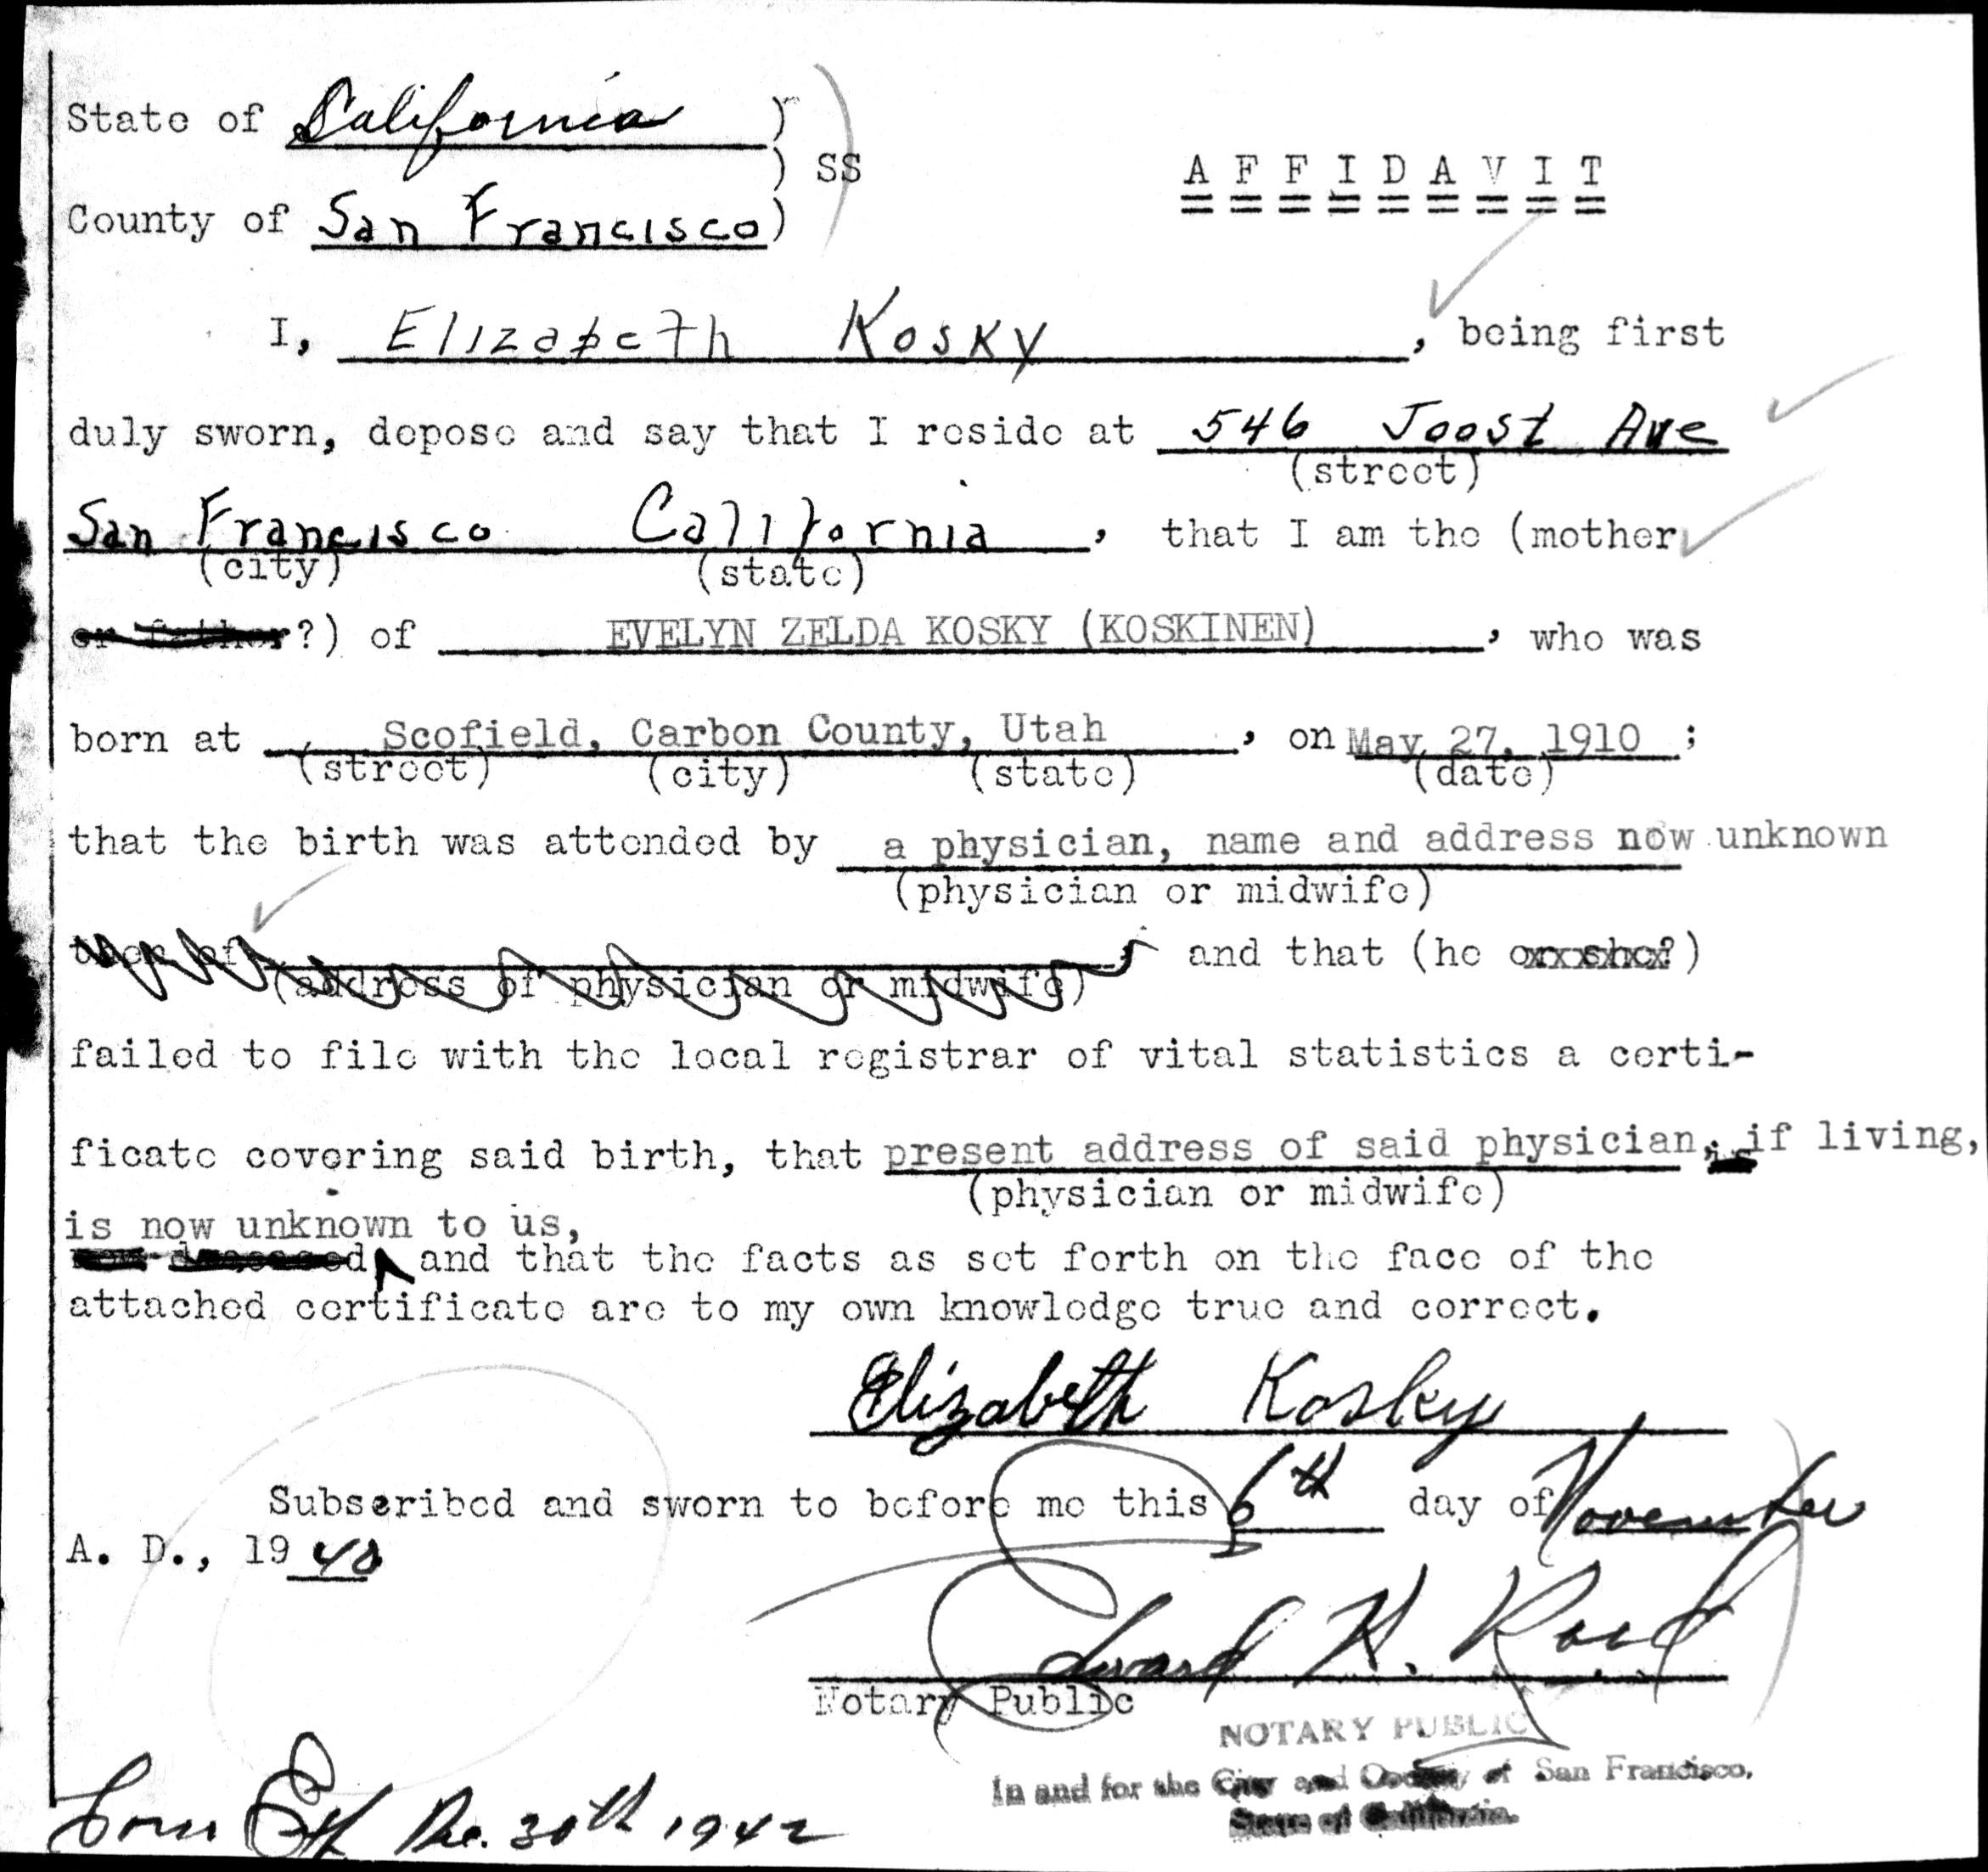 State of California )
) SS
A F F I D A V I T
County of San Francisco )
I, Elizabeth Kosky , being first
duly sworn, depose and say that I reside at 546 Joost Ave
(street)
San Francisco California , that I am the (mother
(city) (state)
or father?) of EVELYN ZELDA KOSKY (KOSKINEN) , who was
born at Scofield, Carbon County, Utah , on May 27, 1910 ;
(street) (city) (state) (date)
that the birth was attended by a physician, name and address now unknown
(physician or midwife)
and that (he or she?)
(address of physician or midwife)
failed to file with the local registrar of vital statistics a certi-
ficate covering said birth, that present address of said physician, if living,
(physician or midwife)
is now unknown to us,
now deceased, and that the facts as set forth on the face of the
attached certificate are to my own knowledge true and correct.
Elizabeth Kosky
Subscribed and sworn to before me this 6th day of November
A. D., 19 40
Edward H. Reed
Notary Public
NOTARY PUBLIC
In and for the City and County of San Francisco,
State of California.
Dec. 30th 1942